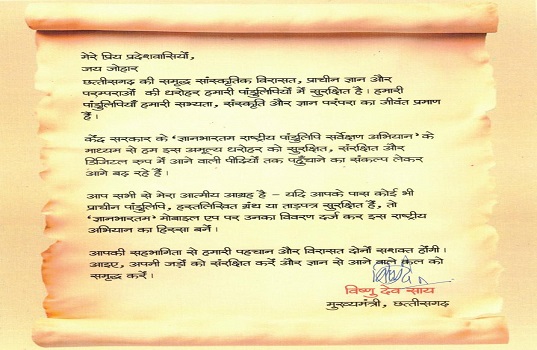 मेरे प्रिय प्रदेशवासियों,
जय जोहार
छत्तीसगढ़ की समृद्ध सांस्कृतिक विरासत, प्राचीन ज्ञान और
परम्पराओं की धरोहर हमारी पांडुलिपियों में सुरक्षित है। हमारी
पांडुलिपियाँ हमारी सभ्यता, संस्कृति और ज्ञान परंपरा का जीवंत प्रमाण
हैं।
केंद्र सरकार के ‘ज्ञानभारतम राष्ट्रीय पांडुलिपि सर्वेक्षण अभियान’ के
माध्यम से हम इस अमूल्य धरोहर को सुरक्षित, संरक्षित और
डिजिटल रूप में आने वाली पीढ़ियों तक पहुँचाने का संकल्प लेकर
आगे बढ़ रहे हैं।
आप सभी से मेरा आत्मीय आग्रह है – यदि आपके पास कोई भी
प्राचीन पांडुलिपि, हस्तलिखित ग्रंथ या ताड़पत्र सुरक्षित हैं, तो
‘ज्ञानभारतम’ मोबाइल एप पर उनका विवरण दर्ज कर इस राष्ट्रीय
अभियान का हिस्सा बनें।
आपकी सहभागिता से हमारी पहचान और विरासत दोनों सशक्त होंगी।
आइए, अपनी जड़ों को संरक्षित करें और ज्ञान से आने वाले कल को
समृद्ध करें।
विष्णु देव साय
मुख्यमंत्री, छत्तीसगढ़